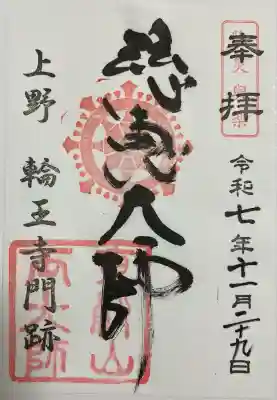 奉拝
令和七年十一月二十九日
慈恵大師
上野 輪王寺門跡
東叡山
両大師